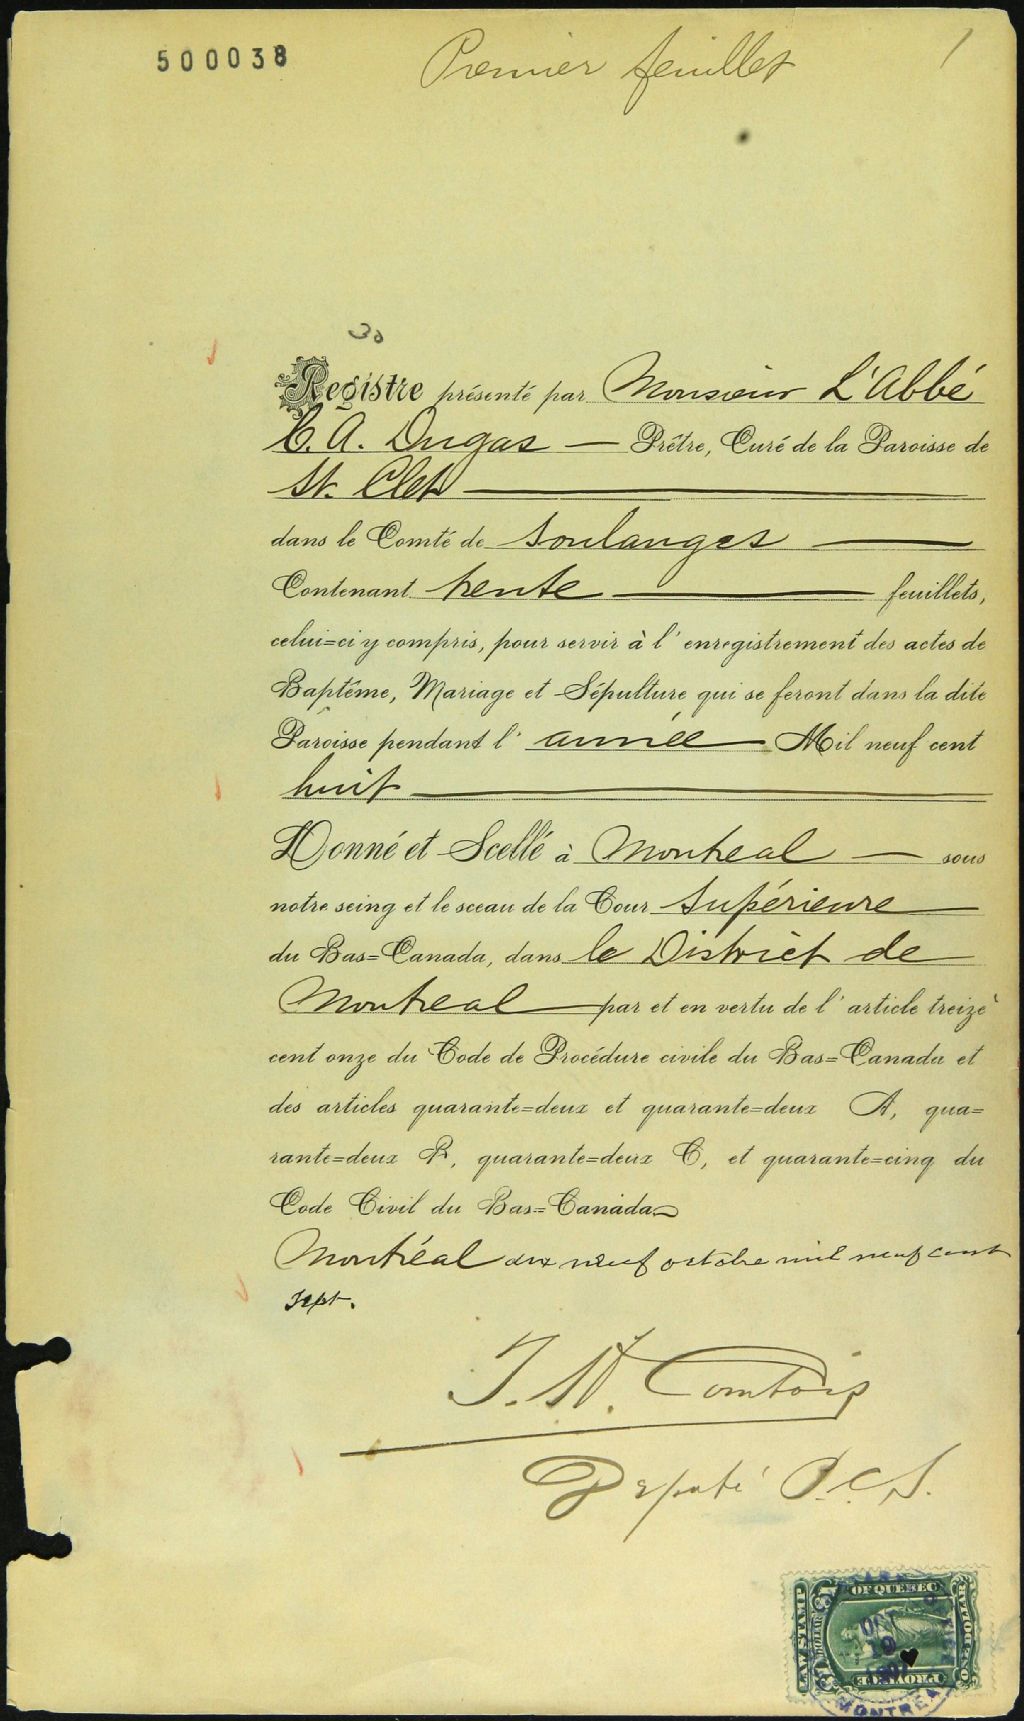 500038
Premier feuillet
1
30
Registre présenté par Monsieur L'Abbé
C. A. Dugas — Prêtre, Curé de la Paroisse de
St. Clet
dans le Comté de Soulanges
Contenant trente feuillets,
celui=ci y compris, pour servir à l'enregistrement des actes de
Baptême, Mariage et Sépulture qui se feront dans la dite
Paroisse pendant l'année Mil neuf cent
huit
Donné et Scellé à Montreal — sous
notre seing et le sceau de la Cour Supérieure
du Bas=Canada, dans le District de
Montreal par et en vertu de l'article treize
cent onze du Code de Procédure civile du Bas=Canada et
des articles quarante=deux et quarante=deux A, qua=
rante=deux B, quarante=deux C, et quarante=cinq du
Code Civil du Bas=Canada
Montréal dix neuf octobre mil neuf cent
sept.
Comtois
Deputé P.C.S.
LAW STAMP
OF QUEBEC
ONE DOLLAR
PROVINCE
OCT
19
1907
MONTREAL